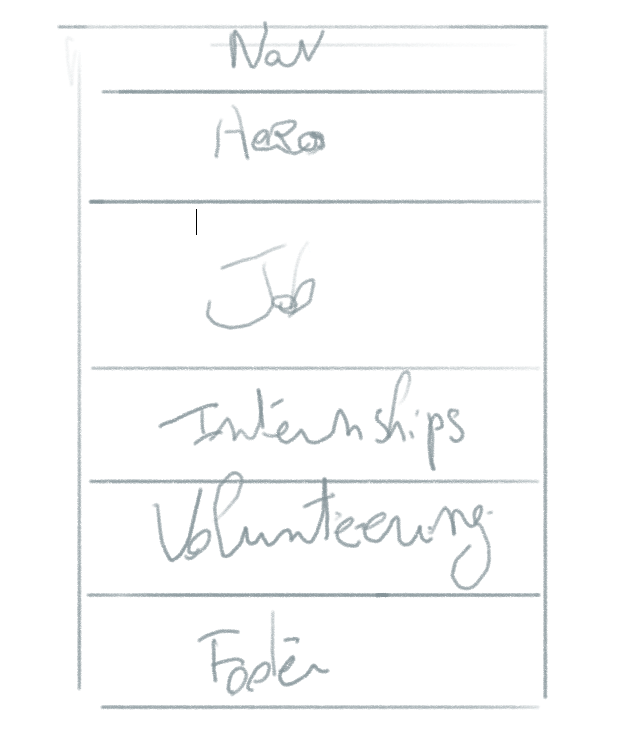 Nav
Hero
Job
Internships
Volunteering
Footer